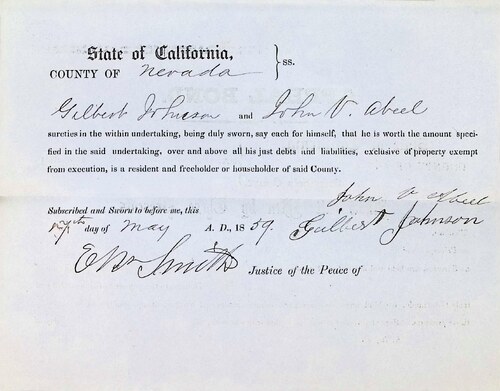 State of California,
COUNTY OF Nevada } ss.
Gilbert Johnson and John V. Abeel
sureties in the within undertaking, being duly sworn, say each for himself, that he is worth the amount speci-
fied in the said undertaking, over and above all his just debts and liabilities, exclusive of property exempt
from execution, is a resident and freeholder or householder of said County.
John V Abeel
Subscribed and Sworn to before me, this
day of May A. D., 1859. Gilbert Johnson
Smith Justice of the Peace of